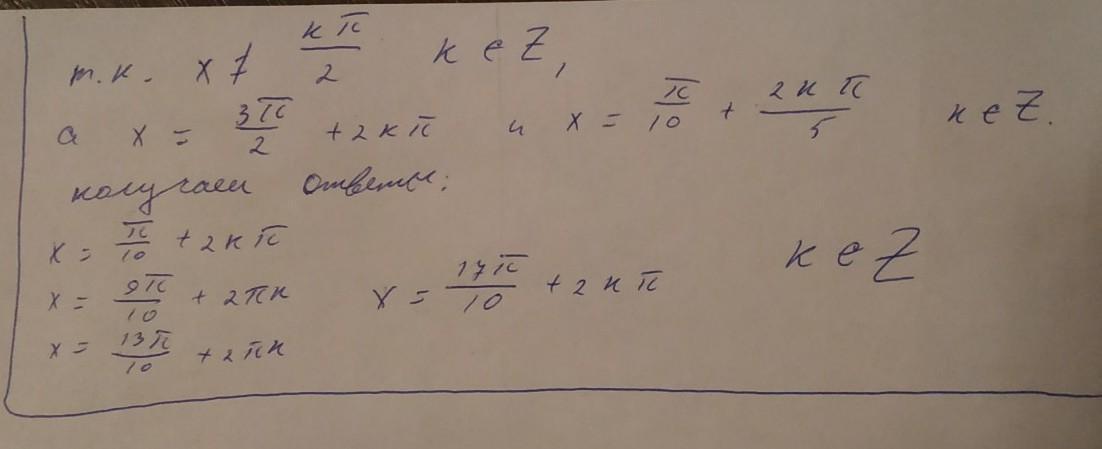 т.к. x ≠ kπ/2 k ∈ Z,
а x = 3π/2 + 2kπ и x = π/10 + 2kπ/5 k ∈ Z.
получаем ответы:
x = π/10 + 2kπ
x = 9π/10 + 2πk x = 17π/10 + 2kπ k ∈ Z
x = 13π/10 + 2πk